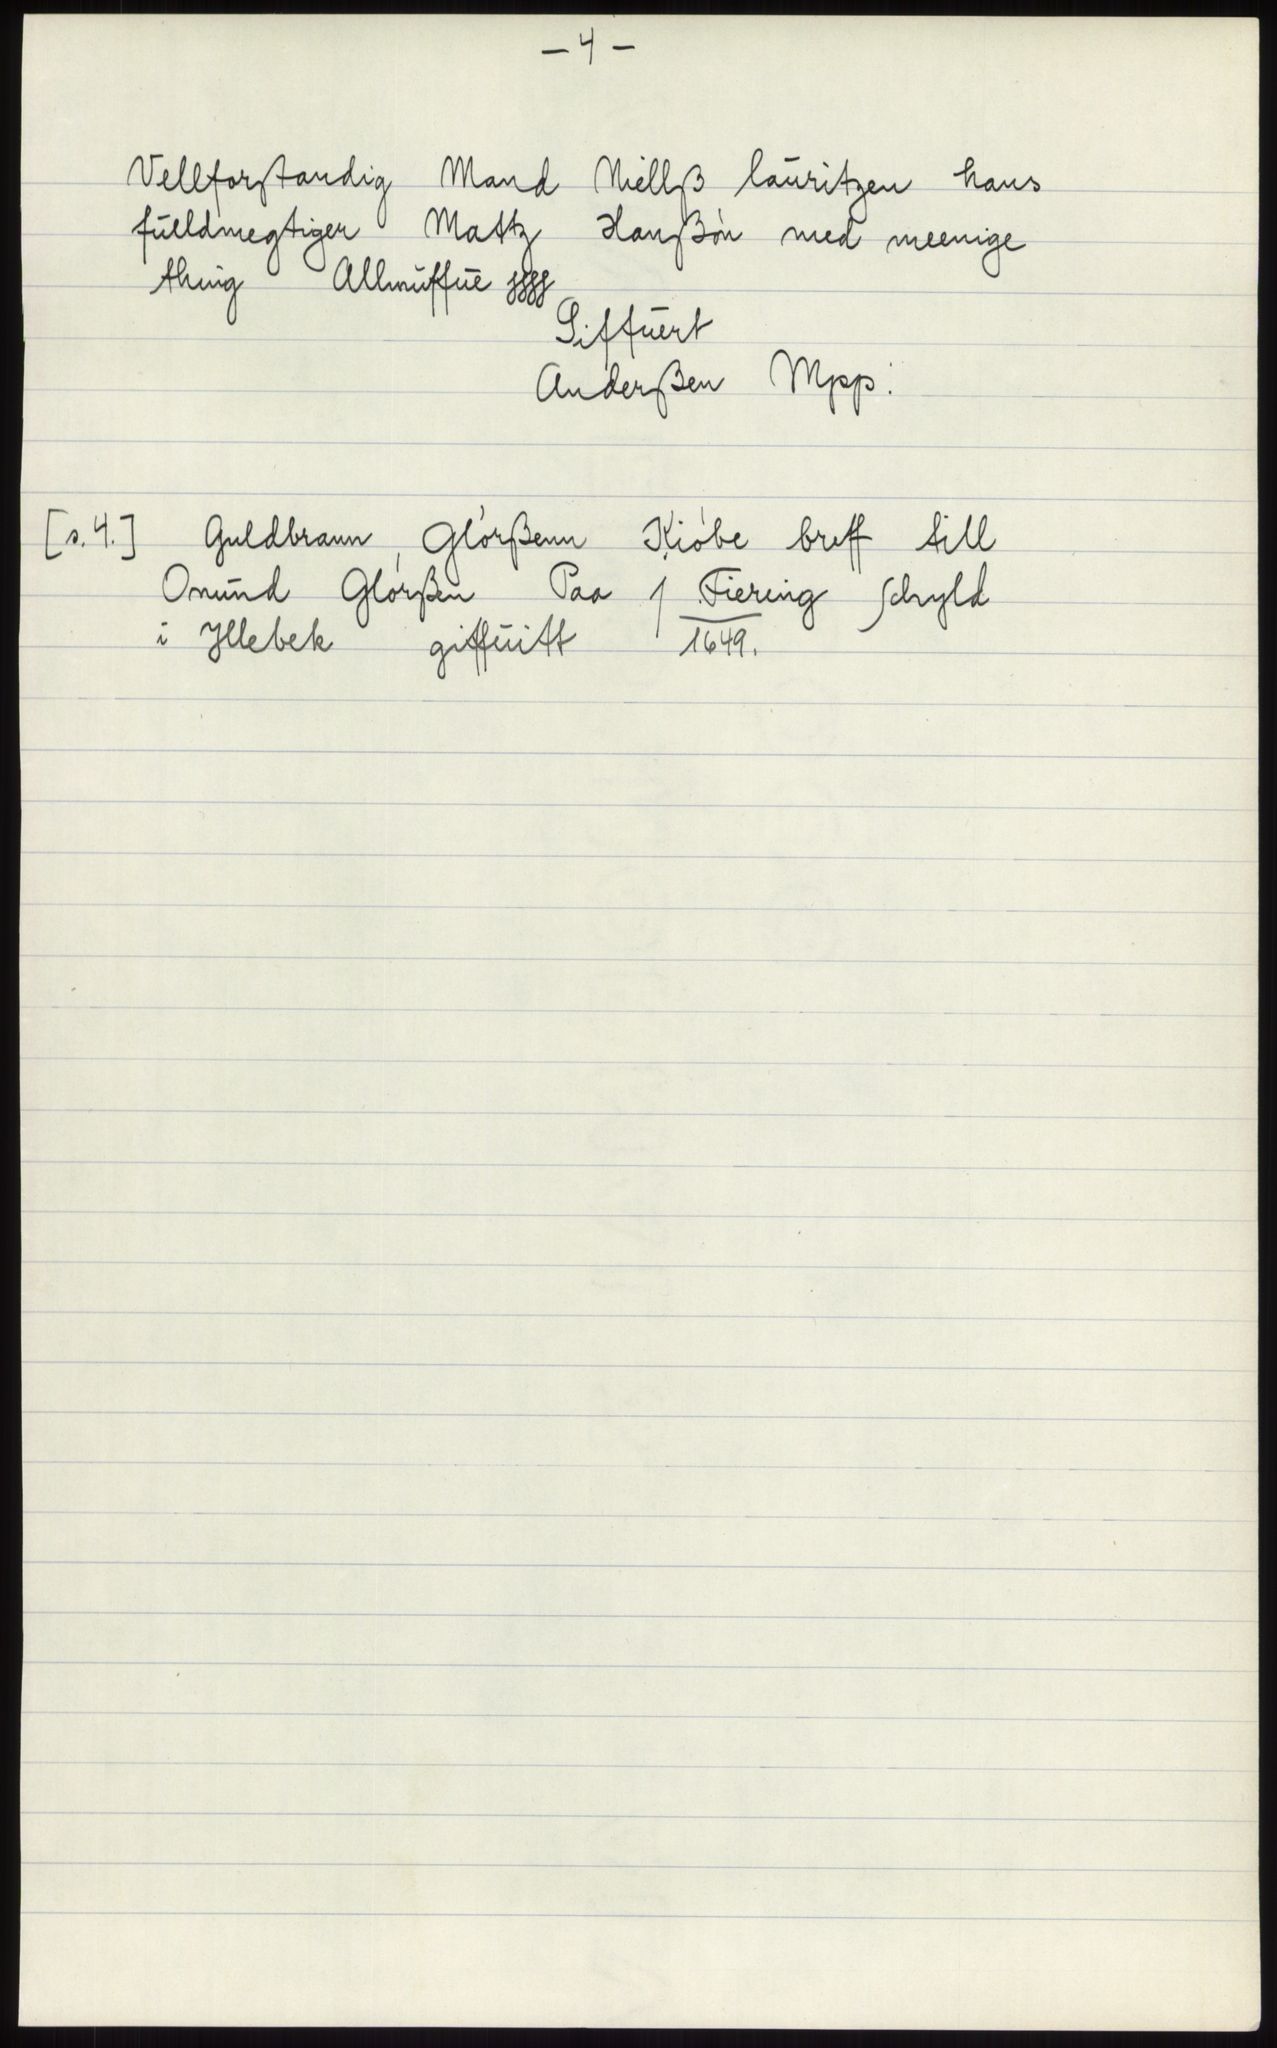 - 4 -
Vellforstandig Mand Niellß lauritzen hans
fuldmegtiger Mattz Hanßòn med meenige
thing Allmuffue
Siffuert
Anderßen Mpp:
[s. 4.] Guldbrann Glórßenn Kióbe breff till
Onund Glórßen Paa j Fiering schyld
i Yllebek giffuitt 1649.